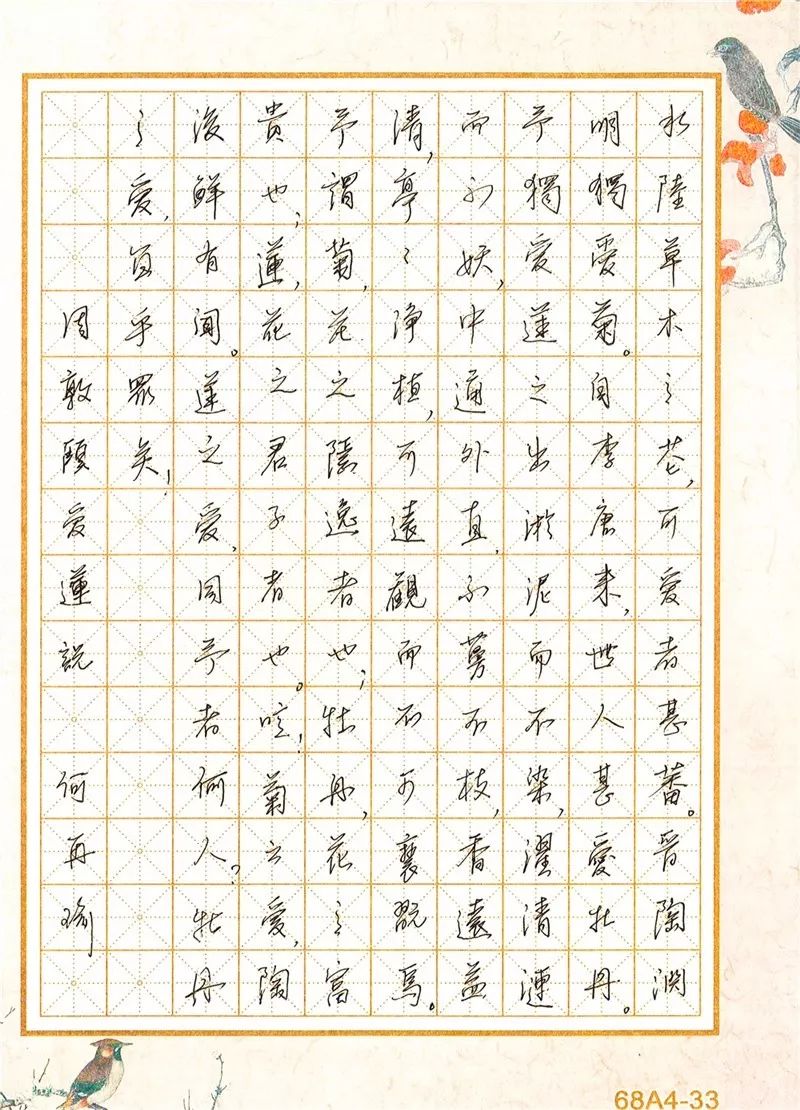 水陸草木之花,可愛者甚蕃。晉陶淵
明獨愛菊。自李唐来,世人甚愛牡丹。
予獨愛蓮之出淤泥而不染,濯清漣
而不妖,中通外直,不蔓不枝,香遠益
清,亭〻净植,可遠觀而不可褻翫焉。
予謂菊,花之隱逸者也;牡丹,花之富
貴也;蓮,花之君子者也。噫!菊之愛,陶
後鮮有聞。蓮之愛,同予者何人?牡丹
之愛,宜乎眾矣!
周敦頤愛蓮説 何再瑜
68A4-33